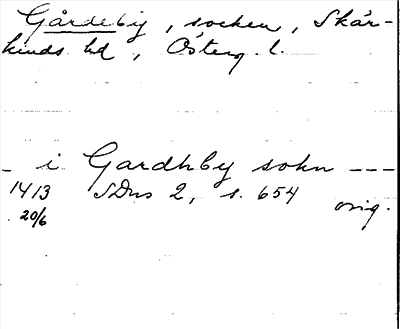 Gårdeby, socken, Skär-
kinds hd, Österg. l.
- i Gardhby sokn ---
1413 SDns 2, s. 654 orig.
20/6